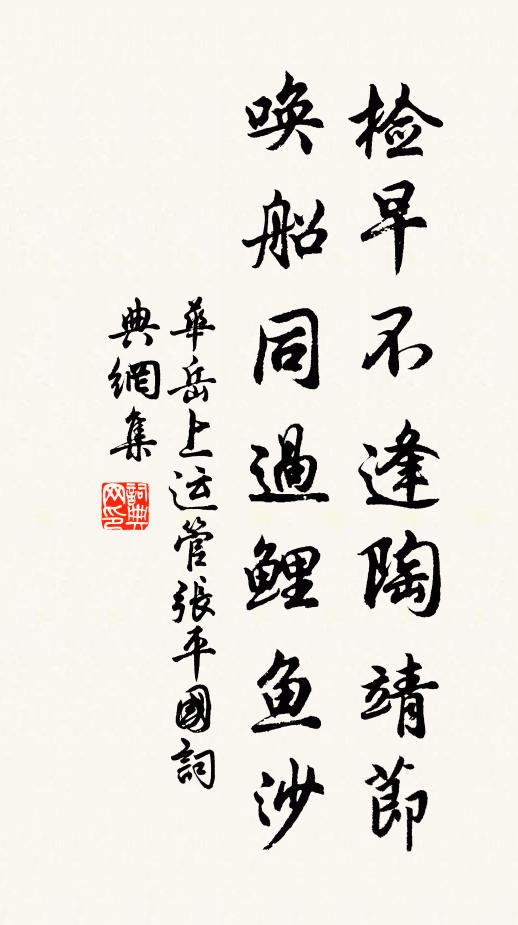 検早不逢陶靖節
喚船同過鯉魚沙
華岳上运管張平國詞
典網集
詞典
网印